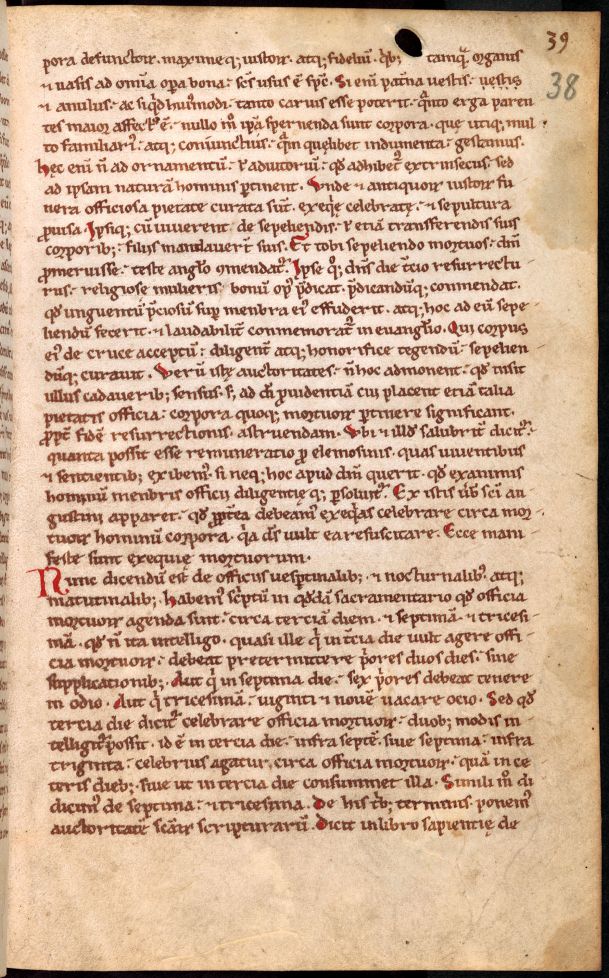 39
38
pora defunctoꝝ. maxime q; iustoꝝ. atq; fidelium. qͥb; tamq̃ organis
⁊ uasis ad om̃ia oꝑa bona. sc̃s usus ẽ sp̃c. Si eni̅ pat̃na uestis. uestis
⁊ anulus. ac siq̇d hui᷒modi. tanto carius esse poterit. qͣnto erga paren
tes maior affect᷒ ẽ. nullo m̊ ip̃a spernenda sunt corpora. que utiq; mul
to familiari᷒. atq; coniunctius. qͣm quęlibet indumenta gestamus.
hęc eni̅ ñ ad ornamentũ. ł adiutoriũ. qđ adhibet᷑ extrinsecus. sed
ad ipsam naturã hominis ꝑtinent. Unde ⁊ antiquoꝝ iustoꝝ fu
nera officiosa pietate curata sũt. exeq̨e celebratę. ⁊ sepultura
ꝓuisa. Ipsiq; cũ uiuerent de sepeliendis. ł etiã transferendis suis
corporib; filiis mandauer̃t suis. Et tobi sepeliendo mortuos. dñm
ꝓmeruisse. teste angl̃o ꝯmendat᷑. Ipse q; dñs die t̃cio resurrectu
rus. religiose mulieris bonũ op᷒ p̃dicat. p̃dicandũq; commendat.
qđ unguentũ p̃ciosũ suꝑ menbra ei᷒ effuderit. atq; hoc ad eũ sepe
liendũ fecerit. ⁊ laudabilit̃ commemorat᷑ in euangl̃io. Qui corpus
ei᷒ de cruce acceptũ. diligent̃ atq; honorifice tegendũ. sepelien
dũq; curauit. Verũ istę auctoritates. ñ hoc admonent. qđ insit
ullus cadauerib; sensus. s; ad d̃i ꝓuidentiã cui placent etiã talia
pietatis officia. corpora quoq; mortuoꝝ ꝑtinere significant.
ꝓpt̃ fidẽ resurrectionis astruendam. Ubi ⁊ illđ salubrit̃ dicit᷑.
quanta possit esse remuneratio ꝓ elemosinis. quas uiuentibus
⁊ sentientib; exibem᷒. si neq; hoc apud dñm querit. qđ exanimis
hominũ menbris officii diligentięq; ꝑsoluit᷑. Ex istis ũb sc̃i au
gustini apparet. qđ ꝓpt̃ea debeam᷒ exeq̨as celebrare circa mor
tuoꝝ hominum corpora. qͥa d̃s uult ea resuscitare. Ecce mani
feste sunt exequię mortuorum.
Nunc dicendũ est de officiis uesꝑtinalib; ⁊ nocturnalib᷒. atq;
matutinalib; habem᷒ sc̃ptũ in qͦdã sacramentario qđ officia
mortuoꝝ agenda sunt. circa terciã diem. ⁊ septimã. ⁊ tricesi
mã. qđ ñ ita intelligo. quasi ille qͥ in t̃cia die uult agere offi
cia mortuoꝝ. debeat pretermittere p̃ores duos dies. sine
supplicationib; Aut qͥ in septima die. sex p̃ores debeat tenere
in odio. Aut qͥ tricesimã. uiginti ⁊ nouẽ uacare ocio. Sed qđ
tercia die dicit᷑ celebrare officia mortuoꝝ. duob; modis in
telligit᷑ possit. id ẽ in tercia die. infra septẽ. siue septima. infra
triginta. celebrius agatur. circa officia mortuoꝝ. quã in ce
teris dieb; siue ut in tercia die consummet illa. Simili m̊ di
dicim᷒ de septima. ⁊ tricesima. De his tͥb; terminis ponem᷒
auctoritatẽ sc̃arũ scripturarũ. Dicit in libro sapientię de